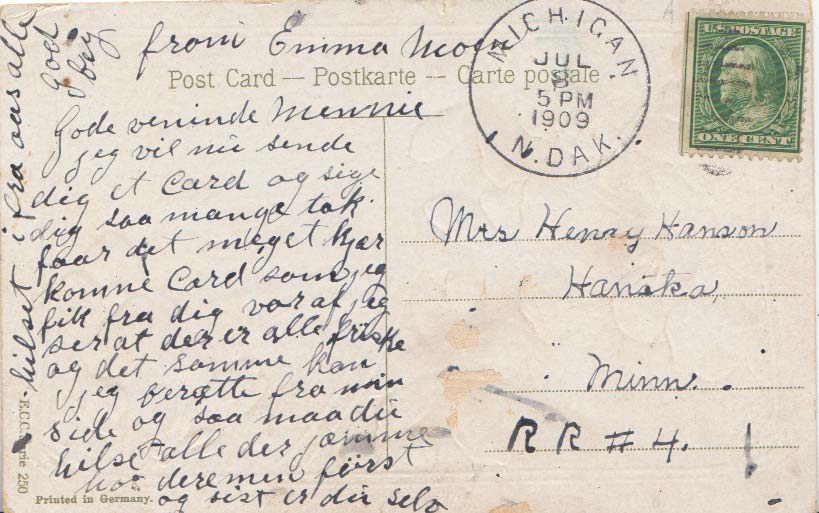 from Emma Moen
Post Card — Postkarte — Carte postale
MICHIGAN
JUL
8
5 PM
1909
N. DAK.
U.S. POSTAGE
ONE CENT
Gode veninde Mennie
jeg vil nu sende
dig et Card og sige
dig saa mange tak
faar det meget kjær
komne Card som jeg
fik fra dig vor af jeg
ser at der er alle friske
og det samme kan
jeg berætte fra min
side og saa maa du
hilse alle der jæmme
hos deremen först
og sist er du selv
hilset ifra oas alle
God by
Mrs Henry Hanson
Hanska,
Minn.
RR # 4.
E.C.C. Serie 250
Printed in Germany.